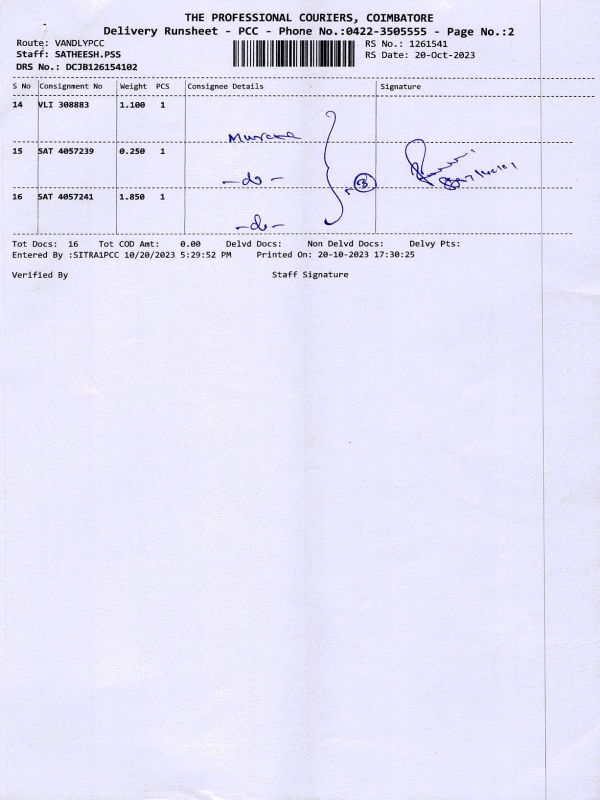 THE PROFESSIONAL COURIERS, COIMBATORE
Delivery Runsheet - PCC - Phone No.:0422-3505555 - Page No.:2
Route: VANDLYPCC RS No.: 1261541
Staff: SATHEESH.PSS RS Date: 20-Oct-2023
DRS No.: DCJB126154102
S No Consignment No Weight PCS Consignee Details Signature
14 VLI 308883 1.100 1
15 SAT 4057239 0.250 1
-do-
16 SAT 4057241 1.850 1
-do-
3
Tot Docs: 16 Tot COD Amt: 0.00 Delvd Docs: Non Delvd Docs: Delvy Pts:
Entered By :SITRA1PCC 10/20/2023 5:29:52 PM Printed On: 20-10-2023 17:30:25
Verified By Staff Signature